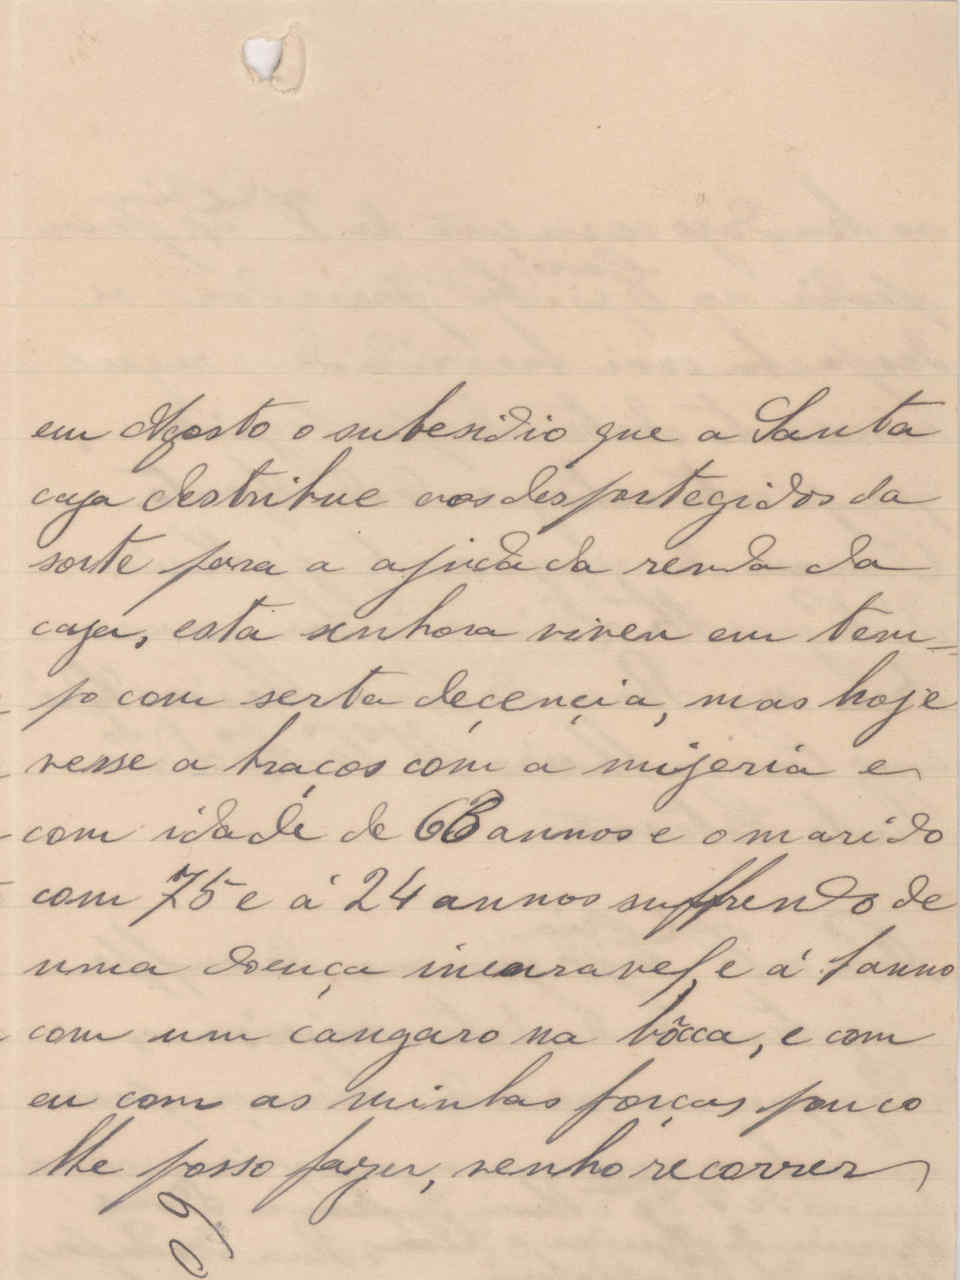 em Agosto o subesidio que a Santa
caja destribue aos desportegidos da
sorte para a ajuda da renda da
caja, esta senhora viveu em tem-
po com serta decençia, mas hoje
vesse a braços com a mijeria e
com idade de 63 annos e o marido
com 75 e á 24 annos suffrendo de
uma doença incuravel, e á 1 anno
com um cangaro na bôcca, e com
eu com as minhas forças pouco
lhe posso fazer, venho recorrer